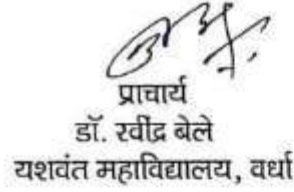 प्राचार्य
डॉ. रवींद्र बेले
यशवंत महाविद्यालय, वर्धा